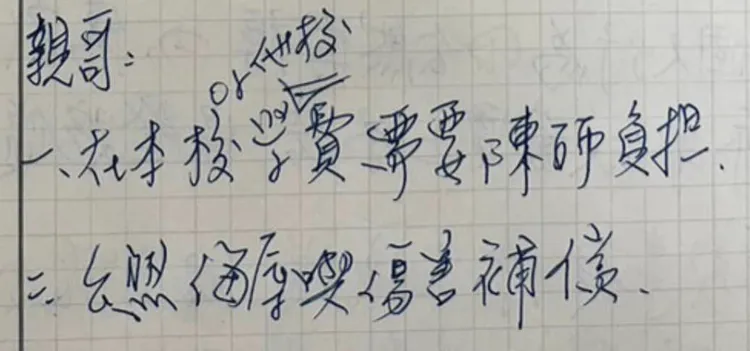 親哥：
or 他校
一、在本校學費需要陳師負担.
二、 傷害補償、